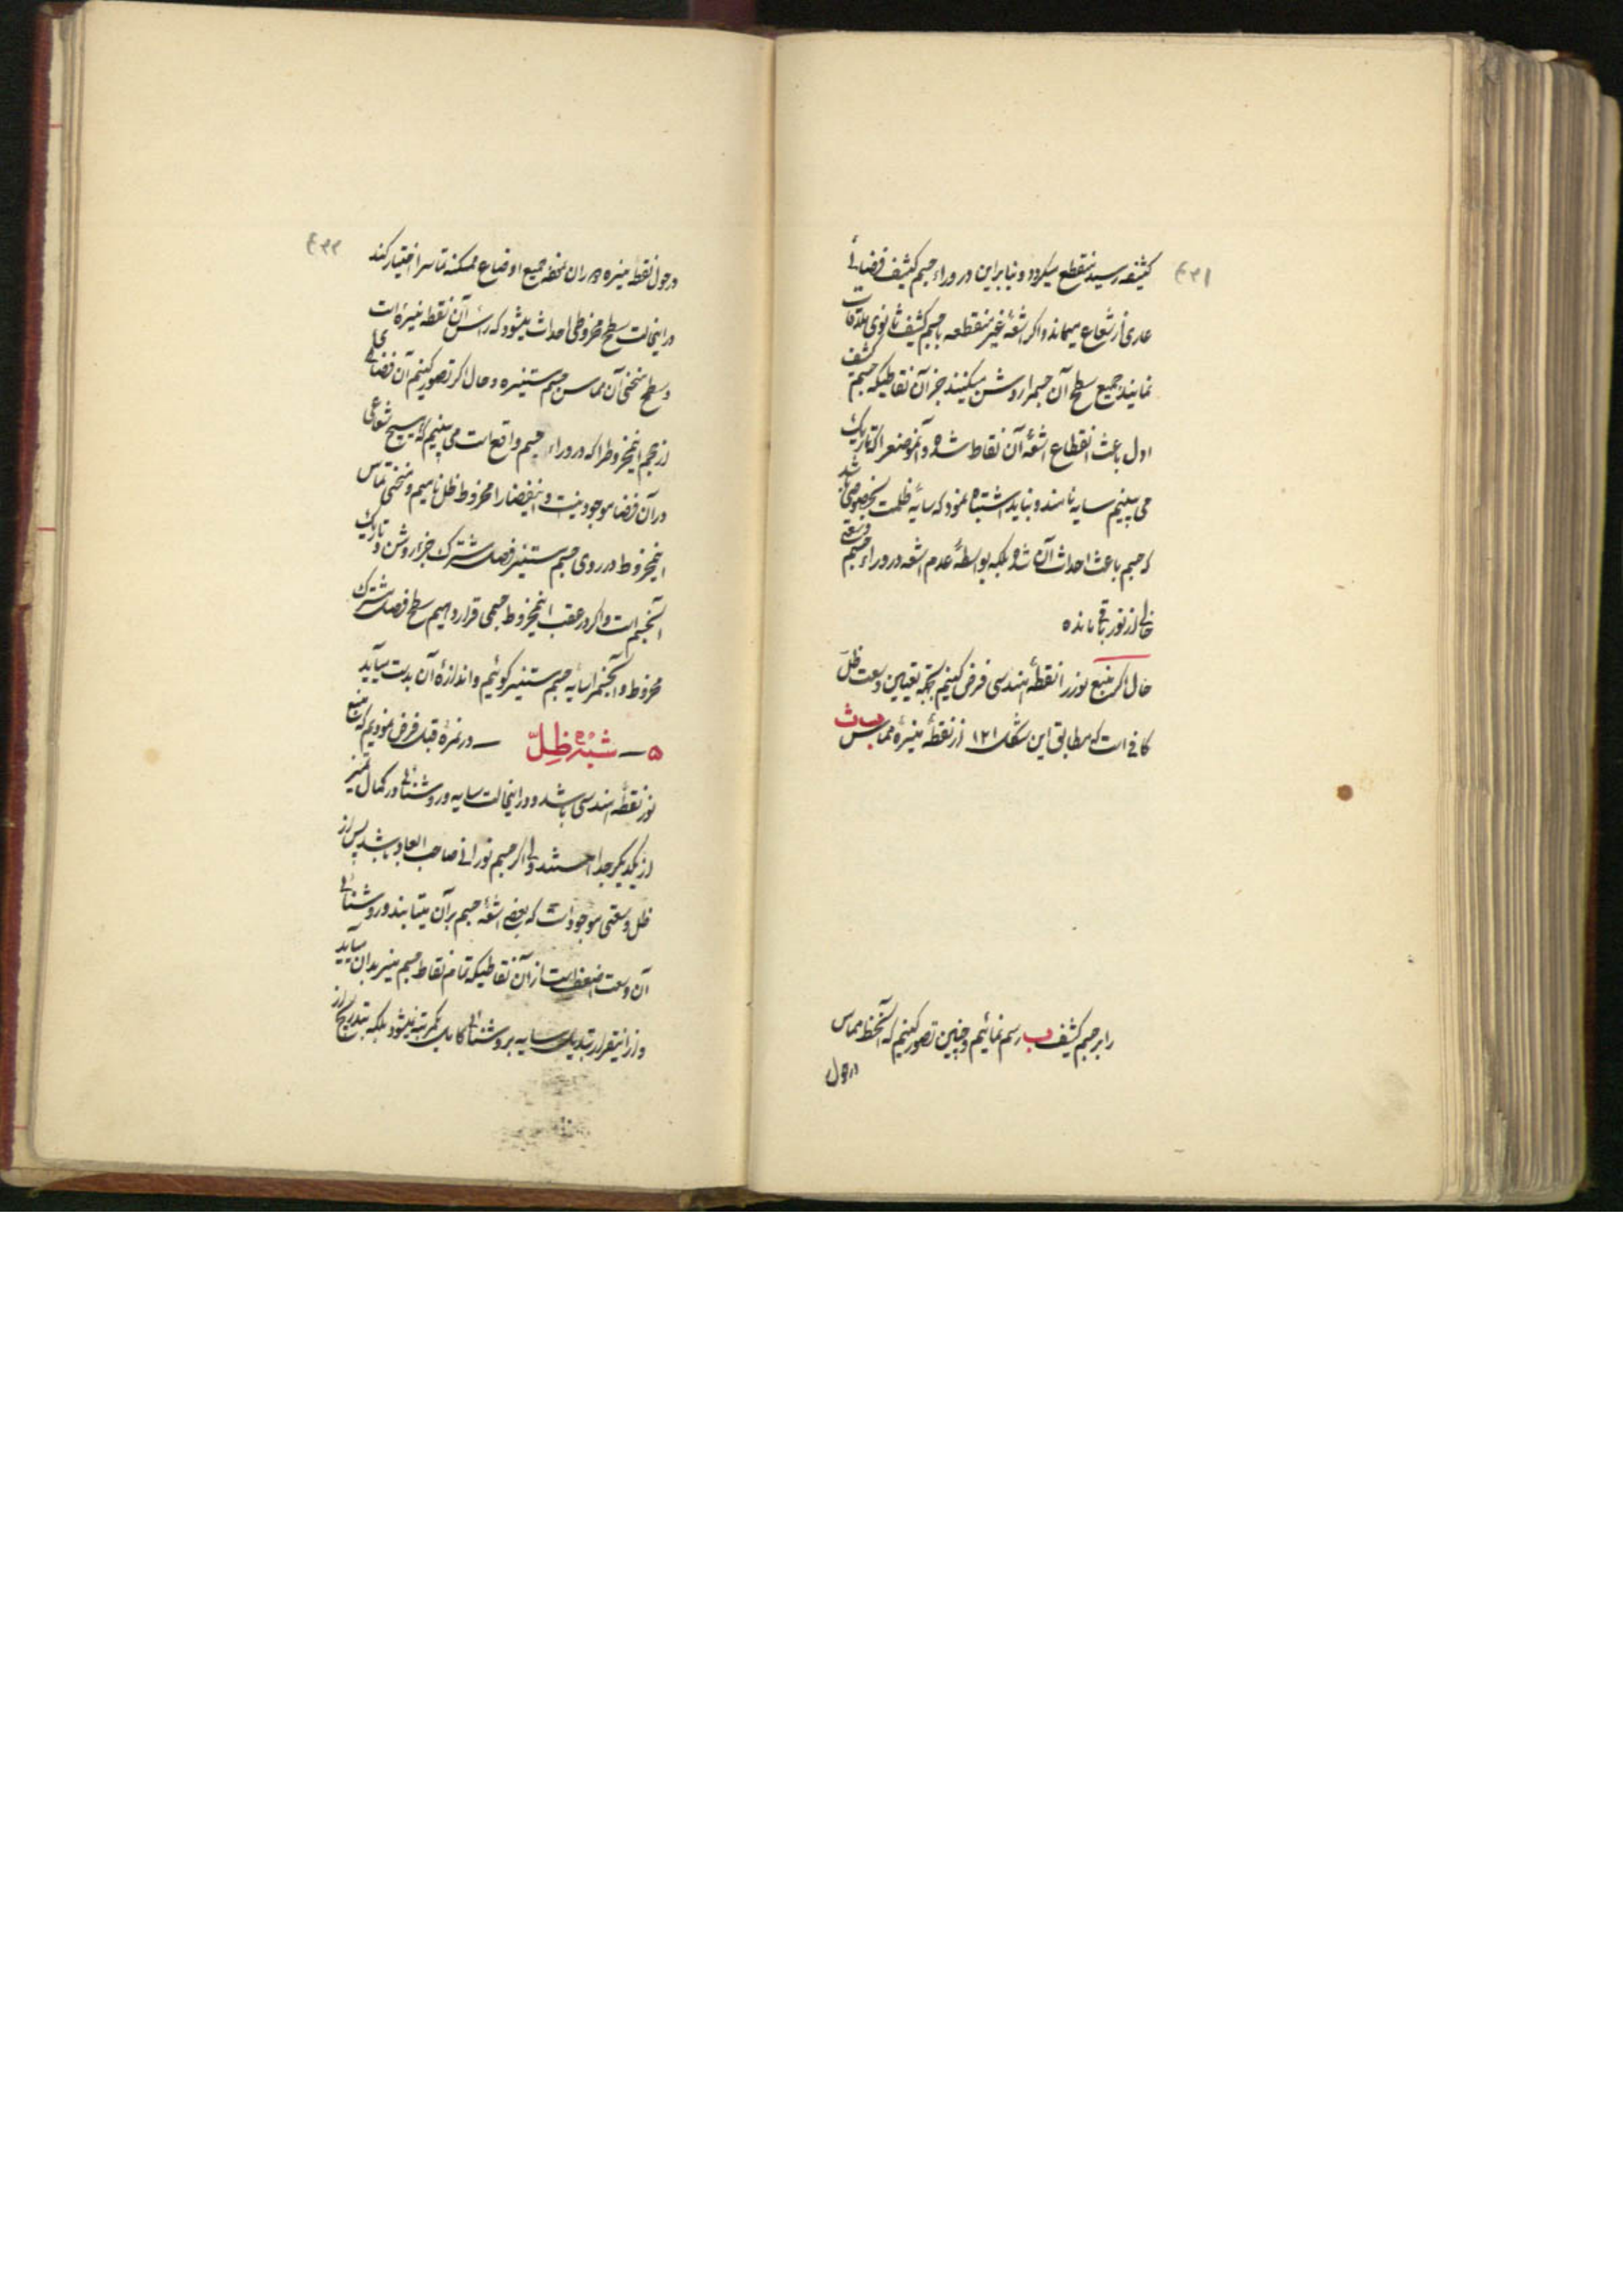 ۴۳۱
کثیفه رسید منقطع میگردد و بنابراین در وراء جسم کثیف فضائی
عاری از شعاع میماند و اگر اشعهٔ غیر منقطعه با جسم کثیف ثانوی ملاقات
نمایند جمیع سطح آن جسمرا روشن میکنند جز آن نقاطیکه جسم کثیف
اول باعث انقطاع اشعهٔ آن نقاط شده و آنموضعرا که تاریک
می بینیم سایه نامند و نباید اشتباه نمود که سایهٔ ظلمت بخصوصی باشد
که جسم باعث احداث آن شده بلکه بواسطهٔ عدم اشعه در وراء جسم وسعتی
خالی از نور باقی مانده
حال اگر منبع نور را نقطهٔ هندسی فرض کنیم بجهة تعیین وسعت ظلّ
کافی است که مطابق این شکل ۱۲۱ از نقطهٔ منیرهٔ مماس ب ث
را بر جسم کثیف ب رسم نمائیم و چنین تصور کنیم که آنخط مماس
در حول
۴۳۲
در حول نقطه منیره دوران نموده جمیع اوضاع ممکنه تماس را اختیار کند
در اینحالت سطح مخروطی احداث میشود که رأس آن نقطه منیرهٔ است
و سطح منحنی آن مماس جسم مستنیره و حال اگر تصور کنیم آن فضائی
از حجم اینمخروط را که در وراء جسم واقع است می بینیم که هیچ شعاعی
در آن فضا موجود نیست و اینفضا را مخروط ظل نامیم و منحنی تماس
اینمخروط در روی جسم مستنیر فصل مشترک جزء روشن و تاریک
آنجسم است و اگر در عقب اینمخروط جسمی قرار دهیم سطح فصل مشترک
مخروط و آنجسم را سایه جسم مستنیر گوئیم و اندازهٔ آن بدست میآید
۵ — شبه ظِلّ — در نمرهٔ قبل فرض نمودیم که منبع
نور نقطه هندسی باشد و در اینحالت سایه و روشنائی در کمال تمیز
از یکدیگر جدا هستند ولی اگر جسم نورانی صاحب ابعاد باشد پس از
ظل وسعتی موجود است که بعضی اشعهٔ جسم بر آن میتابند و روشنائی
آن وسعت اضعف است از آن نقاطیکه تمام نقاط جسم منیر بدان میآید
و از اینقرار تبدیل سایه بروشنائی کامل یکمرتبه نمیشود بلکه بتدریج از